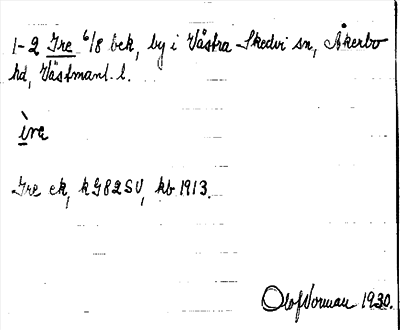 1-2 Ire 6/8 bek, by i Västra Skedvi sn, Åkerbo
hd, Västmanl. l.
ìre
Ire ek, kG82SV, kb 1913.
Olof Norman 1930.